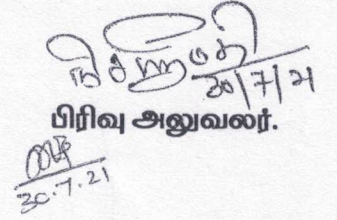 30/7/21
பிரிவு அலுவலர்.
30.7.21